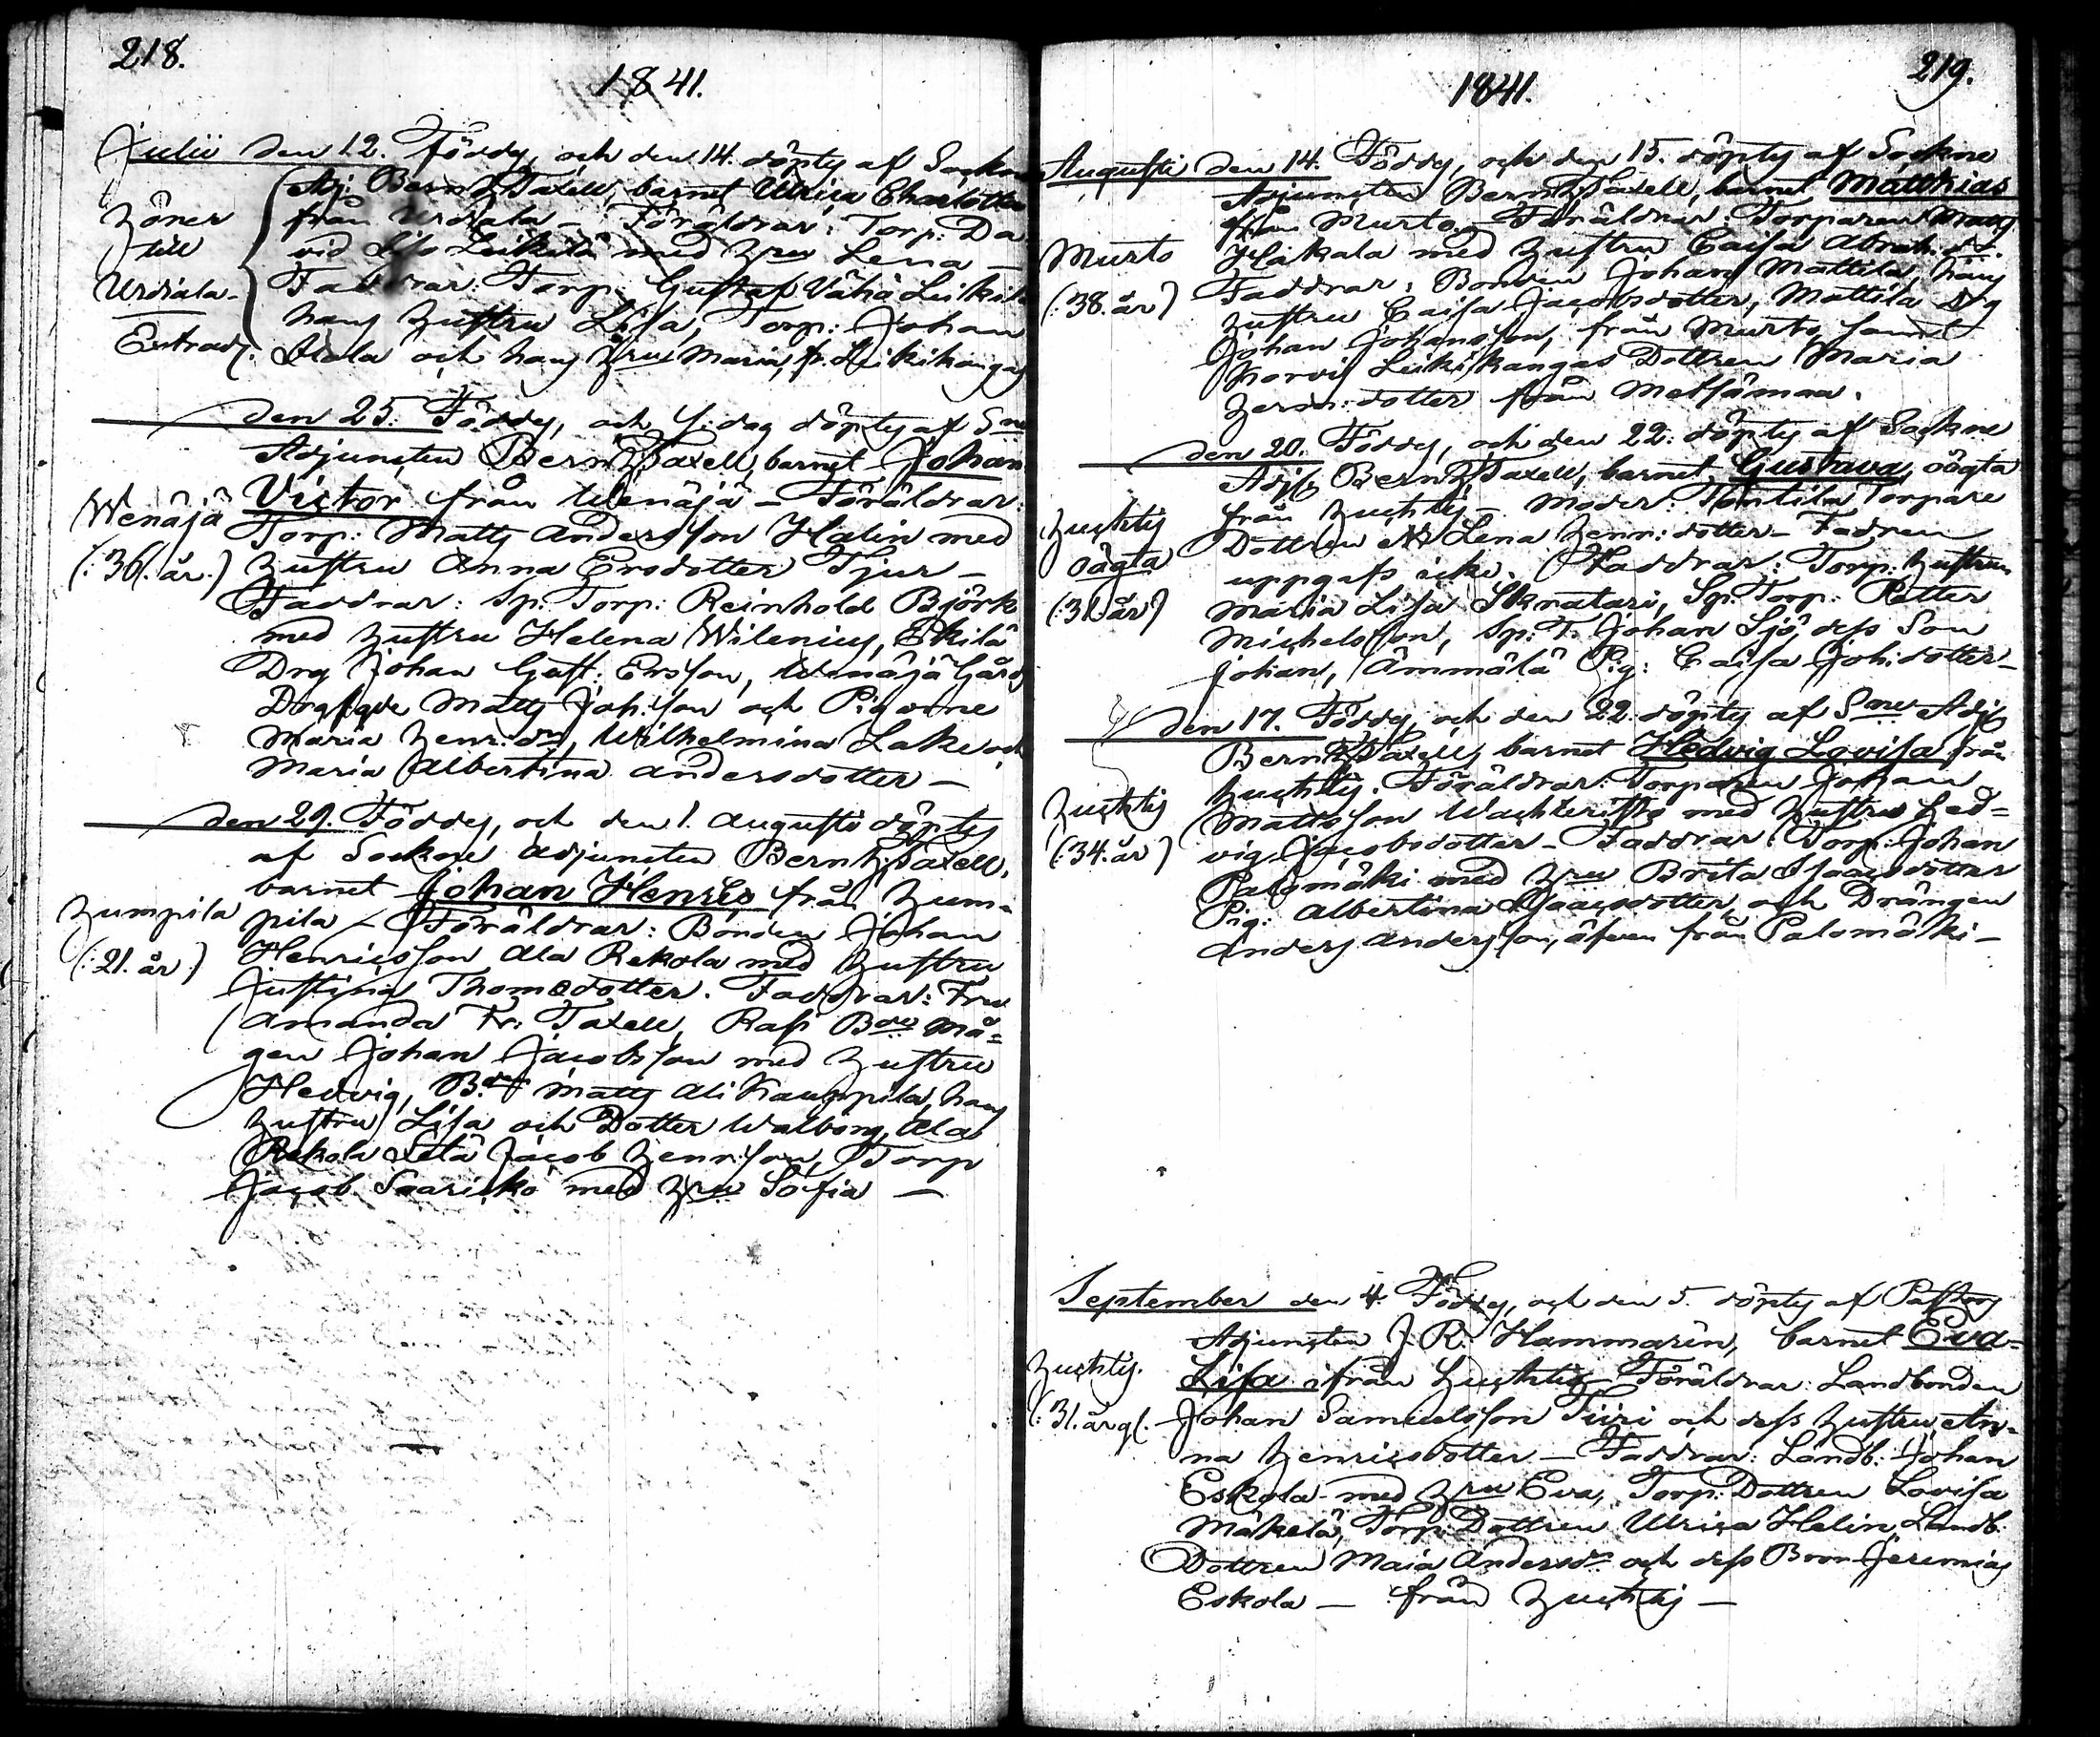 218.
1841.
Julii den 12. Föddes, och den 14. döptes af Sockne
Adj. Bernh. Taxell, barnet Ulrica Charlotta
från Urdiala – Föräldrar: Torp: Da
vid Leikilä med Hru Lena –
Faddrar: Torp: Gustaf Vähä Leikilä
hans Hustru Lisa, Torp: Johan
och hans Hru Maria, fr. Leikikangas
Hörer
till
Urdiala
Extrad.
den 25. Föddes, och s. dag döptes af Sne
Adjuncten Bernh. Taxell, barnet Johan
Victor från Wenäjä – Föräldrar:
Torp: Matts Andersson Halin med
Hustru Anna Ersdotter Tjur –
Faddrar: Sp: Torp: Reinhold Björk
med Hustru Helena Wilenius, Erkilä
Drg Johan Gust: Ersson, Wenäjä Gårds
Matts Joh:son och Pigorne
Maria Henr:dr, Wilhelmina Lake och
Maria Albertina Andersdotter –
Wenäjä
(:36. år:)
den 29. Föddes, och den 1. Augusti döptes
af Sockne Adjuncten Bernh. Taxell,
barnet Johan Henric från Hum=
pila – Föräldrar: Bonden Johan
Henricsson Ala Rekola med Hustru
Justina Thomedotter. Faddrar: Fru
Amanda Fr: Taxell, Rasi Bde Må=
gen Johan Jacobsson med Hustru
Hedvig, Bden Matts Ali Kauppila, hans
Hustru Lisa och Dotter Walborg, Ala
Rekola Jacob Henr:son, Torp
Jacob Saarikko med Hru Sofia –
Humpila
(:21. år:)
1841.
219.
Augusti den 14. Föddes, och den 15. döptes af Sockne
Adjuncten Bernh. Taxell, barnet Matthias
från Murto – Föräldrar: Torparen Matts
Hakala med Hustru Caisa Abrah: dr.
Faddrar: Bonden Johan Mattila, hans
Hustru Caisa Jacobsdotter, Mattila Drg
Johan Johansson, från Murto, samt
Korvi Leikikangas Dottren Maria
Herm:dotter från Metsämaa.
Murto
(:38. år)
den 20. Föddes, och den 22. döptes af Sockne
Adj. Bernh. Taxell, barnet Gustava, oägta
från Huchtis – Moder: Tontila Torpare
Dottren Lena Henr:dotter – Fadren
uppgafs icke. Faddrar: Torp: Hustrun
Maria Lisa Sknatari, Sp: Torp: Petter
Michelsson, Sp: T. Johan Sjö, dess Son
Johan, Ämmälä Pig: Caisa Joh:dotter –
Huchtis
oägta
(:31. år)
den 17. Föddes, och den 22. döptes af Sne Adj
Bernh. Taxell, barnet Hedvig Lovisa från
Huchtis. Föräldrar: Torparen Johan
Mattsson Wachteristo med Hustru Hed=
vig Jacobsdotter – Faddrar: Torp: Johan
Palomäki med Hru Brita Isaacsdotter
Pig: Albertina Isaacsdotter och Drängen
Anders Andersson, äfven från Palomäki –
Huchtis
(:34. år)
September den 4. Föddes, och den 5. döptes af Pastors
Adjuncten J. R. Hammarén, barnet Eva
Lisa ifrån Huchtis – Föräldrar: Landbonden
Johan Samuelsson Tiiri och dess Hustru, An=
na Henricsdotter – Faddrar: Landb: Johan
Eskola med Hru Eva, Torp: Dottren Lovisa
Mäkelä, Torp: Dottren Ulrica Helin, Landb:
Dottren Maia Andersdr och dess Bror Jeremias
Eskola – från Huchtis –
Huchtis.
(:31. år gl.